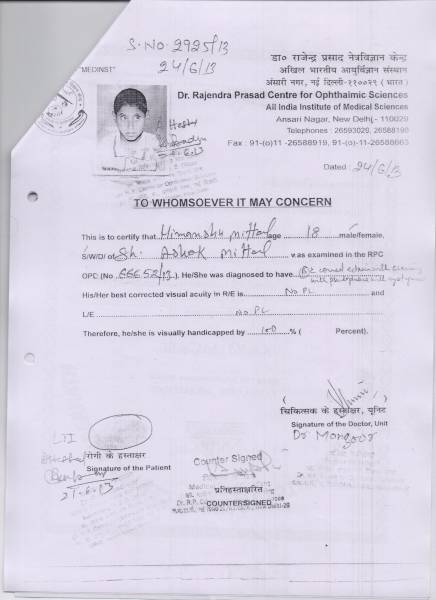 S.No. 2925/13
"MEDINST"
24/6/13
डा० राजेन्द्र प्रसाद नेत्रविज्ञान केन्द्र
अखिल भारतीय आयुर्विज्ञान संस्थान
अंसारी नगर, नई दिल्ली-११००२९ ( भारत )
Dr. Rajendra Prasad Centre for Ophthalmic Sciences
All India Institute of Medical Sciences
Ansari Nagar, New Delhi - 110029
Telephones : 26593029, 26588196
Fax : 91-(o)11-26588919, 91-(o)-11-26588663
Dated : 24/6/13
TO WHOMSOEVER IT MAY CONCERN
This is to certify that Himanshu Mittal age 18 male/female,
S/W/D/ of Sh. Ashok Mittal was examined in the RPC
OPC (No. 66652/13). He/She was diagnosed to have BE corneal
with
His/Her best corrected visual acuity in R/E is No PL and
L/E No PL
Therefore, he/she is visually handicapped by 100 % ( Percent).
चिकित्सक के हस्ताक्षर, यूनिट
Signature of the Doctor, Unit
LTI
रोगी के हस्ताक्षर
Signature of the Patient
21.6.13
Counter Signed
प्रतिहस्ताक्षरित
COUNTERSIGNED